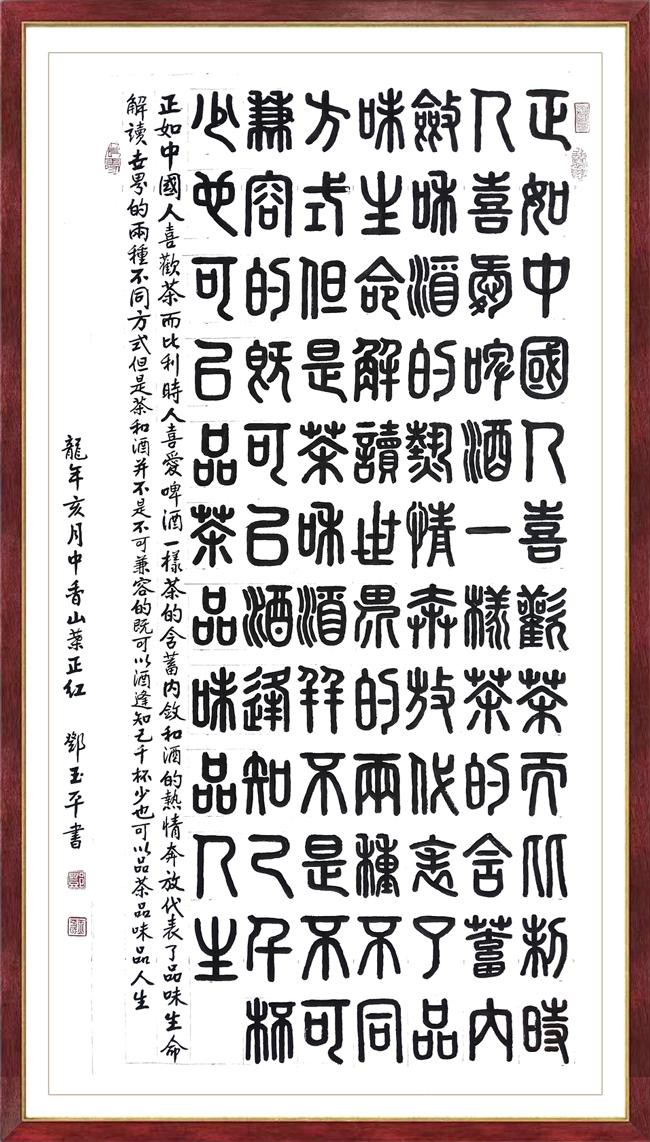 正如中國人喜歡茶而比利時
人喜愛啤酒一樣茶的含蓄内
斂和酒的熱情奔放代表了品
味生命解讀世界的兩種不同
方式但是茶和酒并不是不可
兼容的既可㠯酒逢知己千杯
少也可㠯品茶品味品人生
正如中國人喜歡茶而比利時人喜愛啤酒一樣茶的含蓄内斂和酒的熱情奔放代表了品味生命
解讀世界的兩種不同方式但是茶和酒并不是不可兼容的既可以酒逢知己千杯少也可以品茶品味品人生
龍年亥月中香山葉正紅 鄧玉平書